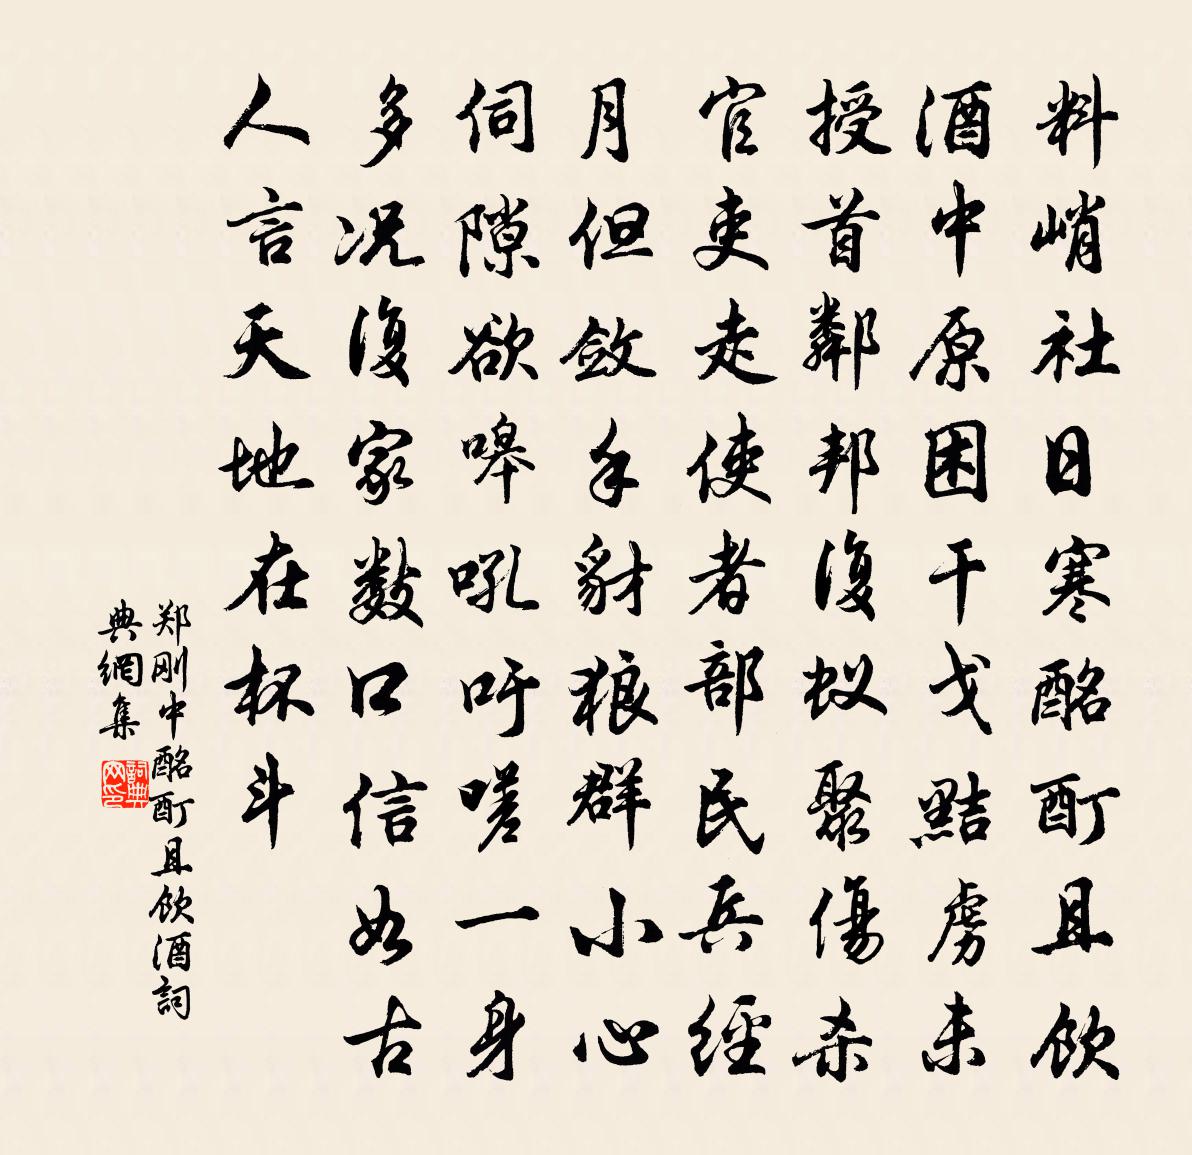 料峭社日寒酩酊且飲
酒中原困干戈黠虜未
授首鄰邦復蚁聚傷殺
官吏走使者部民兵經
月但斂手豺狼群小心
伺隙欲嗥吼吁嗟一身
多况復家數口信如古
人言天地在杯斗
郑刚中酩酊且飲酒詞
典網集
詞典